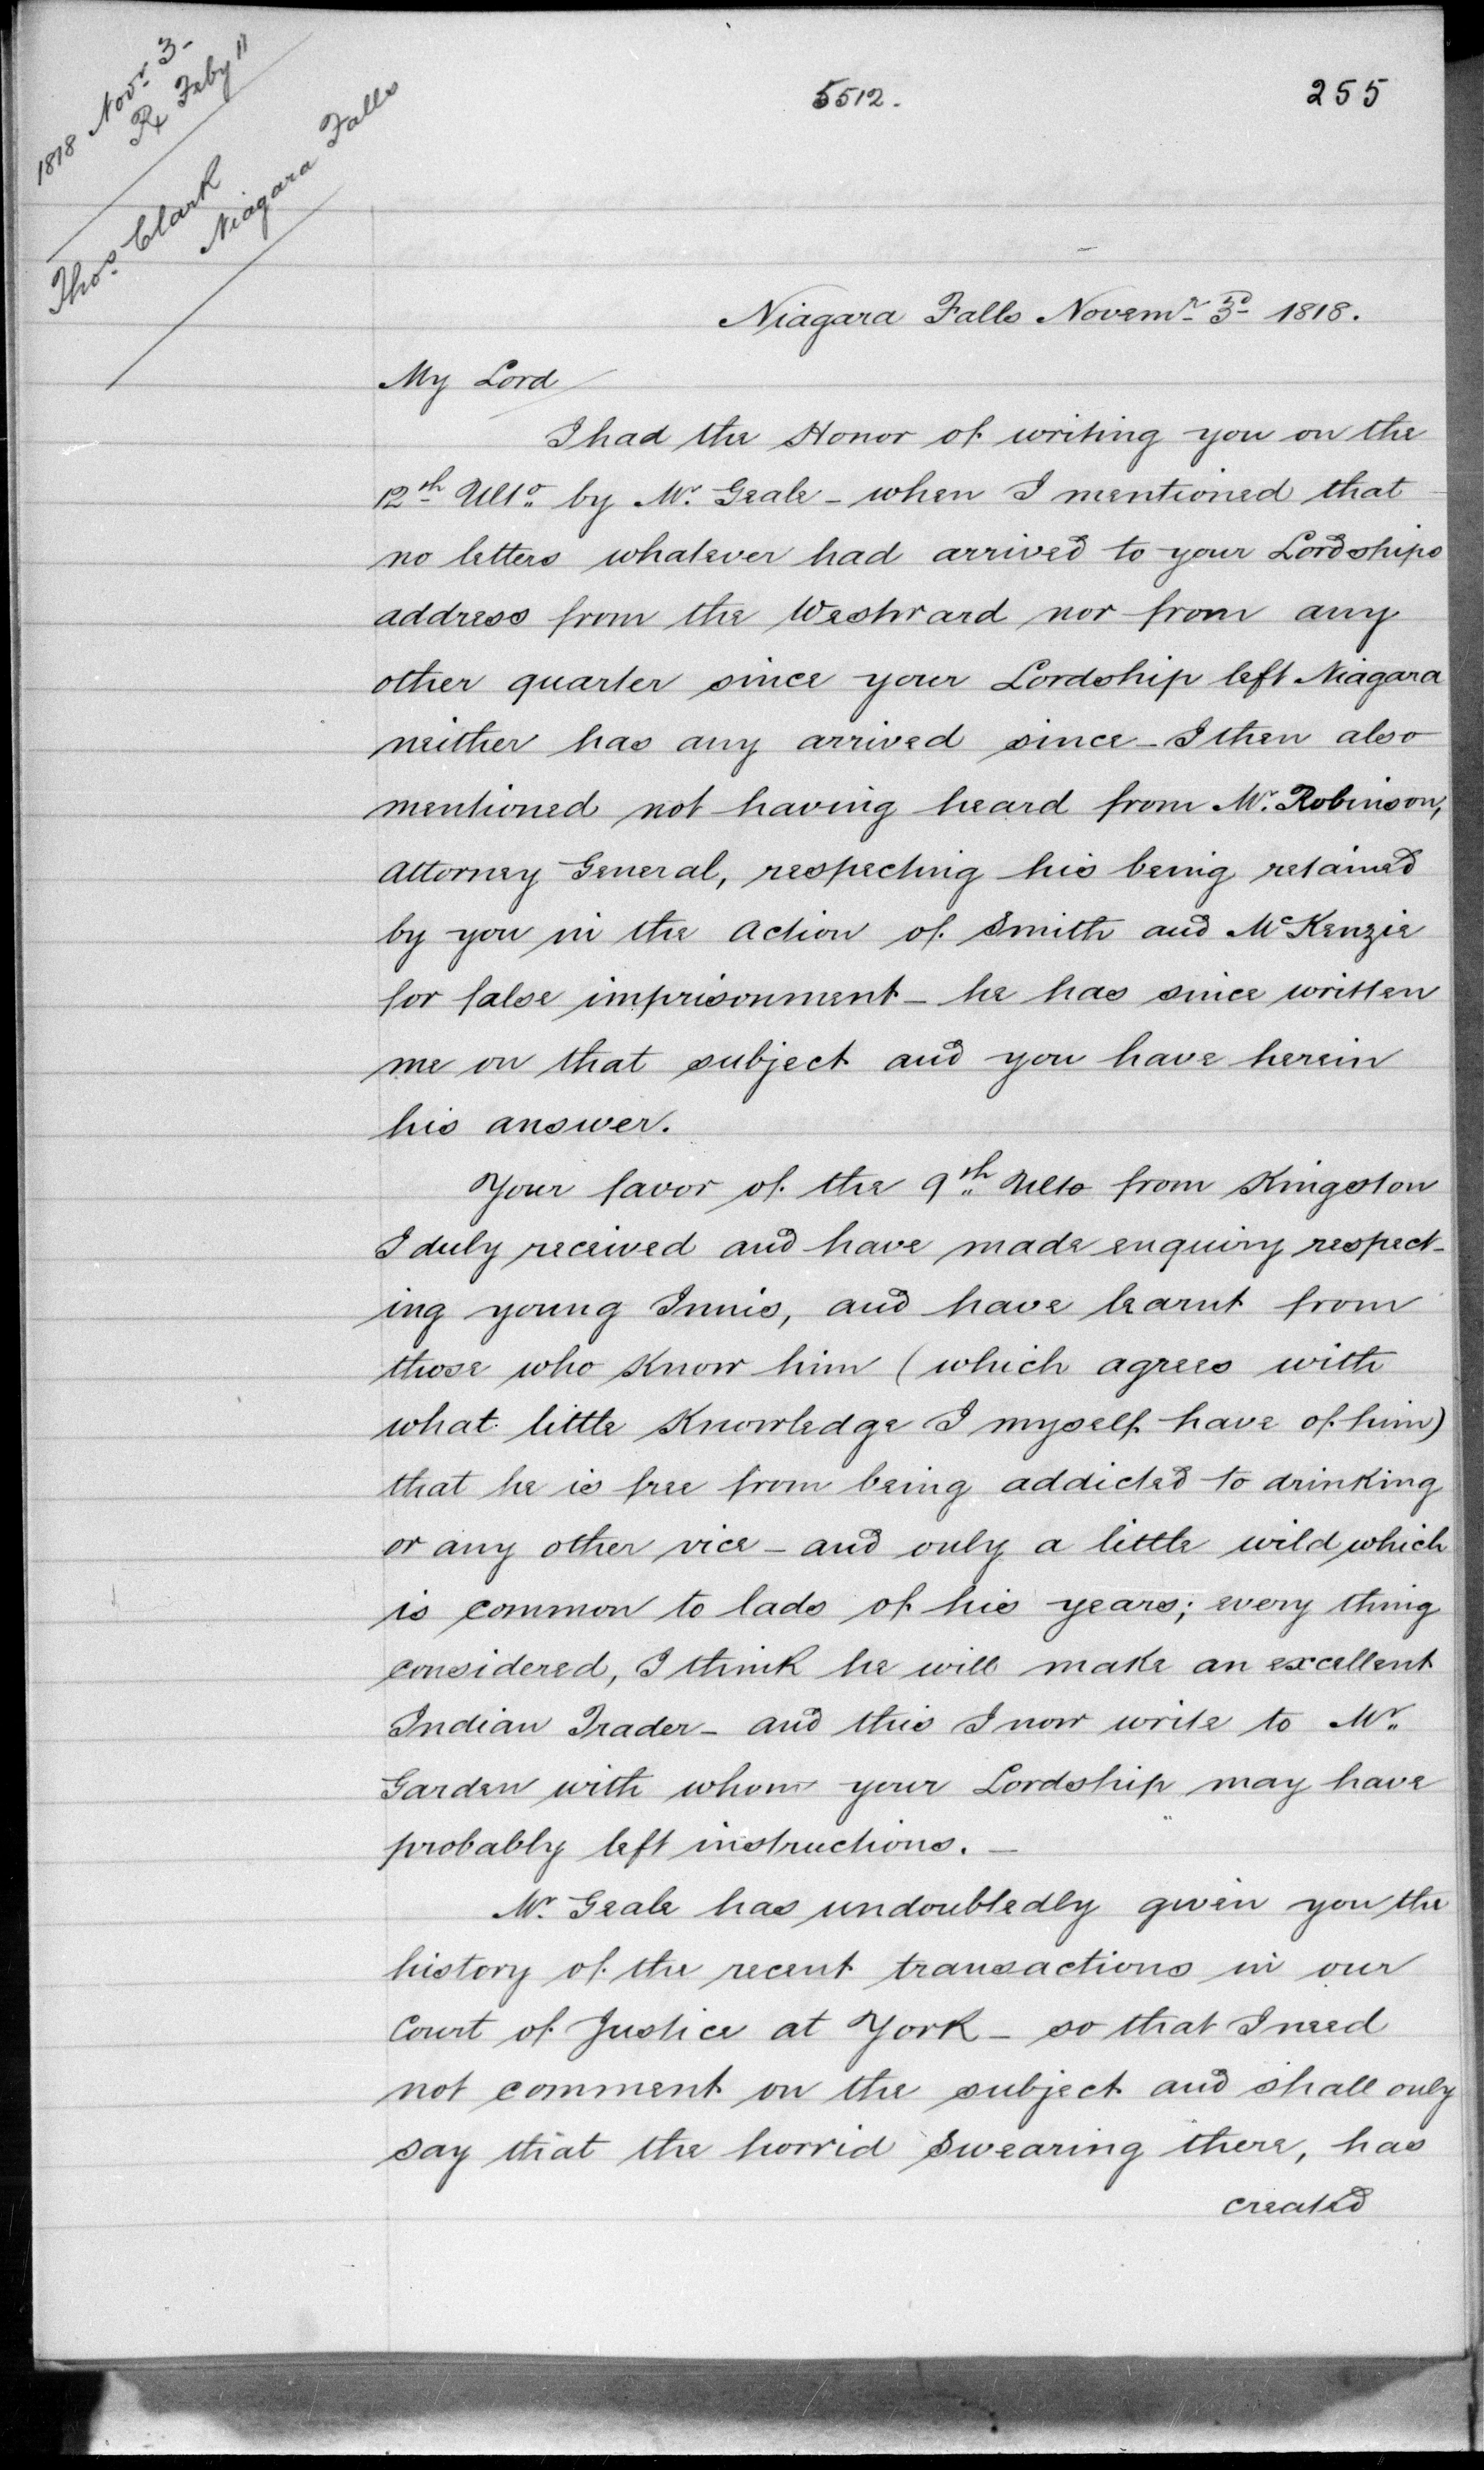 1818 Novr. 3-
Rx Feby 11
Thos. Clark
Niagara Falls
5512.
255
Niagara Falls Novemr. 3d 1818.
My Lord
I had the Honor of writing you on the
12th Ulto. by Mr. Geale - when I mentioned that
no letters whatever had arrived to your Lordships
address from the Westward nor from any
other quarter since your Lordship left Niagara
neither has any arrived since - I then also
mentioned not having heard from Mr. Robinson,
Attorney General, respecting his being retained
by you in the Action of Smith and McKenzie
for false imprisonment - he has since written
me on that subject and you have herein
his answer.
Your favor of the 9th Ulto from Kingston
I duly received and have made enquiry respect-
ing young Innis, and have learnt from
those who know him (which agrees with
what little Knowledge I myself have of him)
that he is free from being addicted to drinking
or any other vice - and only a little wild which
is common to lads of his years; every thing
considered, I think he will make an excellent
Indian Trader - and this I now write to Mr.
Garden with whom your Lordship may have
probably left instructions. -
Mr. Geale has undoubtedly given you the
history of the recent transactions in our
Court of Justice at York - so that I need
not comment on the subject and shall only
say that the horrid Swearing there, has
created